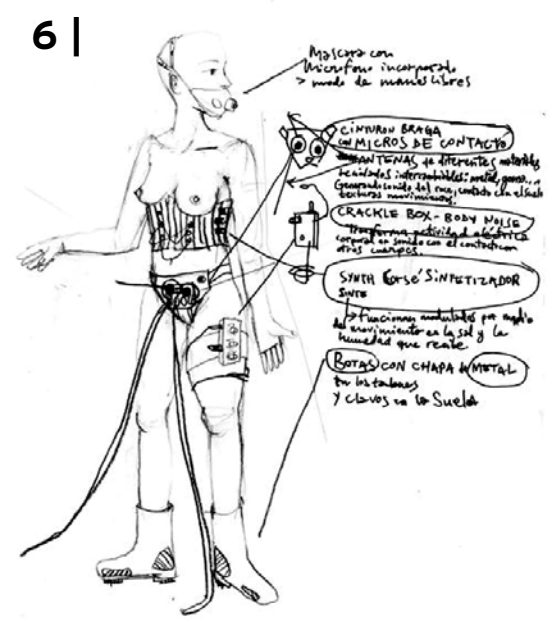 6 |
Mascara con
Microfono incorporado
> modo de manos libres
CINTURON BRAGA
CON MICROS DE CONTACTO
ANTENAS de diferentes materiales
texturas movimientos.
CRACKLE BOX - BODY NOISE
Transforma actividad eléctrica
corporal en sonido con el contacto con
otros cuerpos.
SYNTH CORSÉ SINTETIZADOR
SINTE
> funciones moduladas por medio
del movimiento en la sal y la
humedad que recibe
BOTAS CON CHAPA de METAL
en los talones
y clavos en la Suela